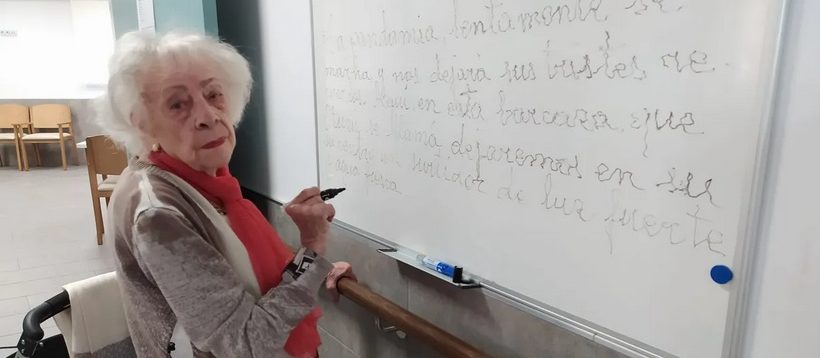 La pandemia, lentamente se
marcha y nos dejará sus tristes re
en esta barcaza, que
se llama, dejaremos en su
un surtidor de luz fuerte
fresca